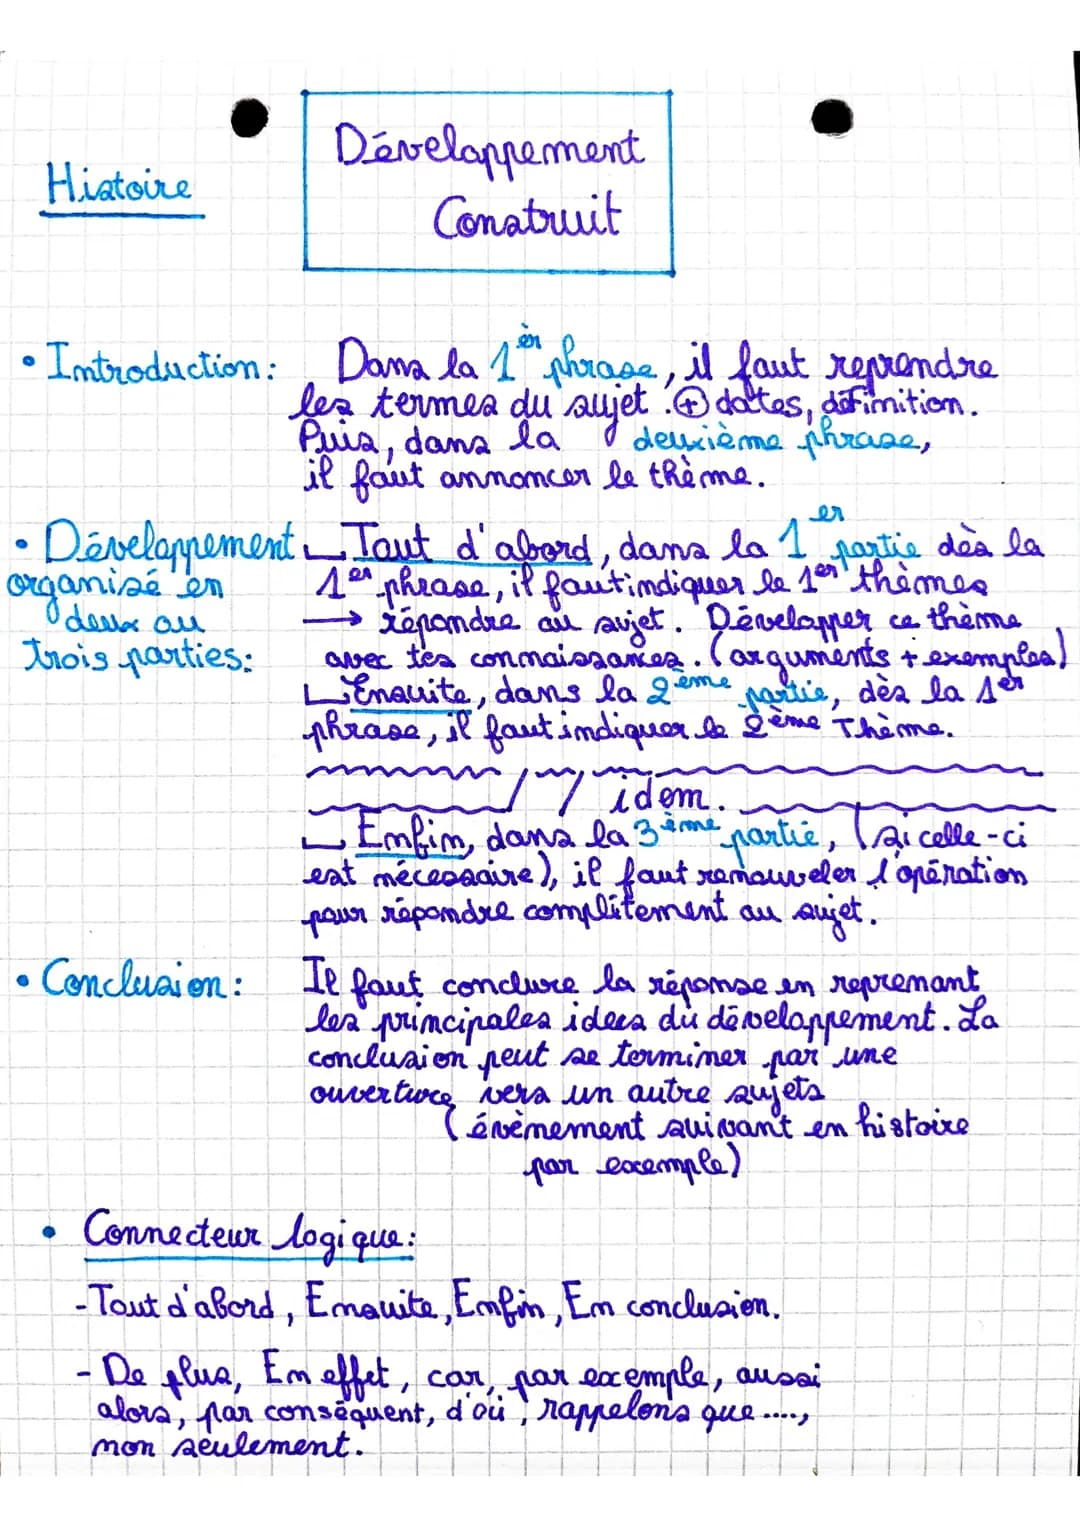 Histoire
Développement
Construit
• Introduction: Dans la 1èr phrase, il faut reprendre
les termes du sujet. ⊕ dates, définition.
Puis, dans la deuxième phrase,
il faut annoncer le thème.
• Développement
organisé en
deux ou
trois parties:
Tout d'abord, dans la 1er partie dès la
1er phrase, il faut indiquer le 1er thèmes
→ répondre au sujet. Développer ce thème
avec tes connaissances. (arguments + exemples)
Ensuite, dans la 2ème partie, dès la 1er
phrase, il faut indiquer le 2ème Thème.
// idem.
Enfin, dans la 3ème partie, (si celle-ci
est nécessaire), il faut renouveler l'opération
pour répondre complètement au sujet.
• Conclusion: Il faut conclure la réponse en reprenant
les principales idées du développement. La
conclusion peut se terminer par une
ouverture vers un autre sujets
(évènement suivant en histoire
par exemple)
• Connecteur logique:
- Tout d'abord, Ensuite, Enfin, En conclusion.
- De plus, En effet, car, par exemple, aussi
alors, par conséquent, d'où, rappelons que ....,
non seulement.